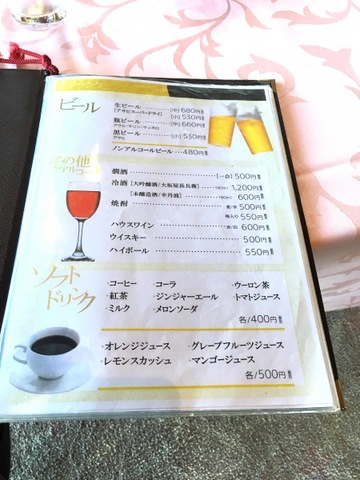 ビール
生ビール ………… [中] 680円
[アサヒスーパードライ] [小] 530円
瓶ビール ………… [中] 660円
アサヒ/キリン/サッポロ
黒ビール ………… [小] 530円
アサヒ
ノンアルコールビール …… 480円
その他
アルコール
燗酒 ………… [一合] 500円
冷酒 [大吟醸酒/大坂屋長兵衛] ……… 180ml 1,200円
[本醸造酒/辛丹波] ……… 180ml 600円
焼酎 ………… 麦/芋 500円
梅入り 550円
ハウスワイン ………… 赤/白 600円
ウイスキー ………… 500円
ハイボール ………… 550円
ソフト
ドリンク
・コーヒー ・コーラ ・ウーロン茶
・紅茶 ・ジンジャーエール ・トマトジュース
・ミルク ・メロンソーダ
各/400円
・オレンジジュース ・グレープフルーツジュース
・レモンスカッシュ ・マンゴージュース
各/500円